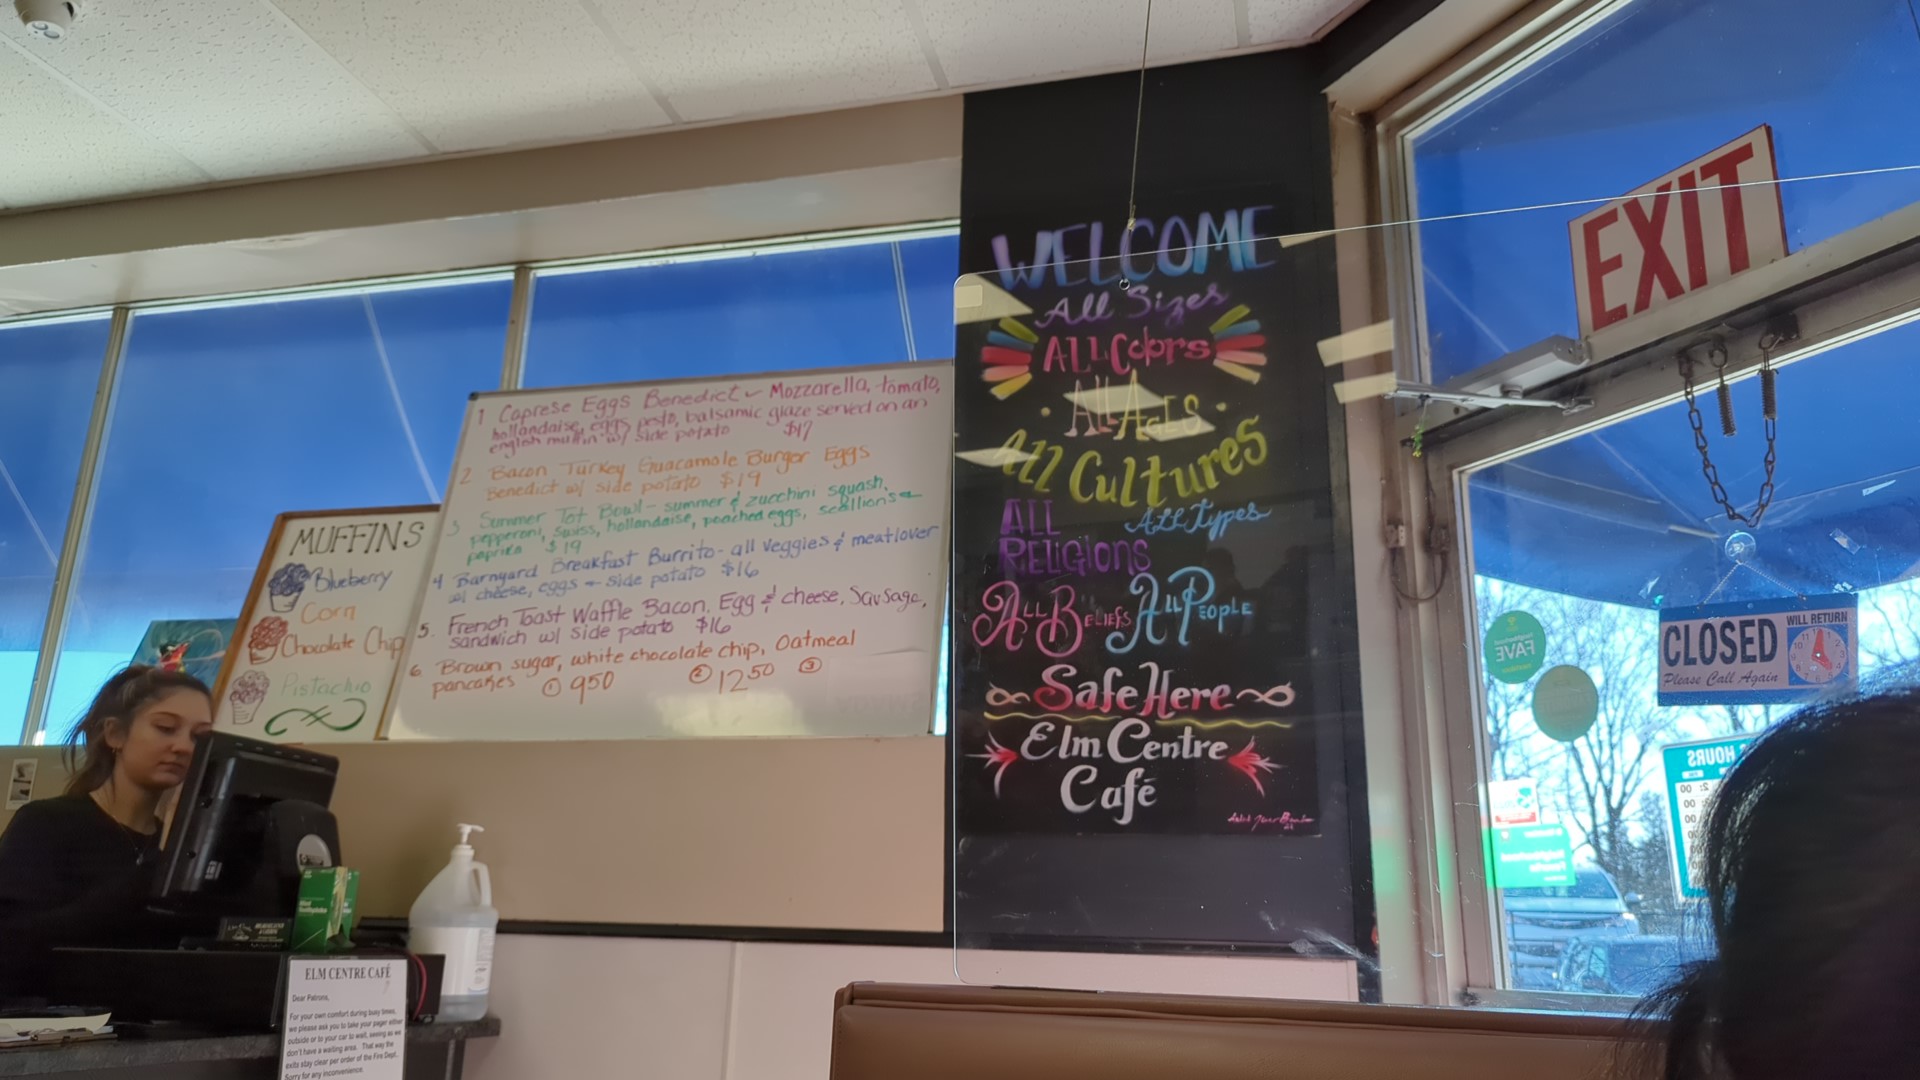 MUFFINS
Blueberry
Corn
Chocolate Chip
Pistachio
1 Caprese Eggs Benedict - Mozzarella, tomato,
hollandaise, eggs pesto, balsamic glaze served on an
english muffin w/ side potato $17
2 Bacon Turkey Guacamole Burger Eggs
Benedict w/ side potato $19
3 Summer Tot Bowl - summer & zucchini squash,
pepperoni, swiss, hollandaise, poached eggs, scallions +
paprika $19
4 Barnyard Breakfast Burrito - all veggies & meatlover
w/ cheese, eggs + side potato $16
5. French Toast Waffle Bacon, Egg & cheese, Sausage,
sandwich w/ side potato $16
6 Brown sugar, white chocolate chip, Oatmeal
pancakes ① 950 ② 1250 ③
WELCOME
All Sizes
ALL Colors
All Ages
All Cultures
ALL Religions
All Types
All Beliefs All People
Safe Here
Elm Centre
Café
EXIT
CLOSED
Please Call Again
WILL RETURN
FAVE
HOURS
ELM CENTRE CAFÉ
Dear Patrons,
For your own comfort during busy times,
we please ask you to take your pager either
outside or to your car to wait, seeing as we
don't have a waiting area. That way the
exits stay clear per order of the Fire Dept.
Sorry for any inconvenience.